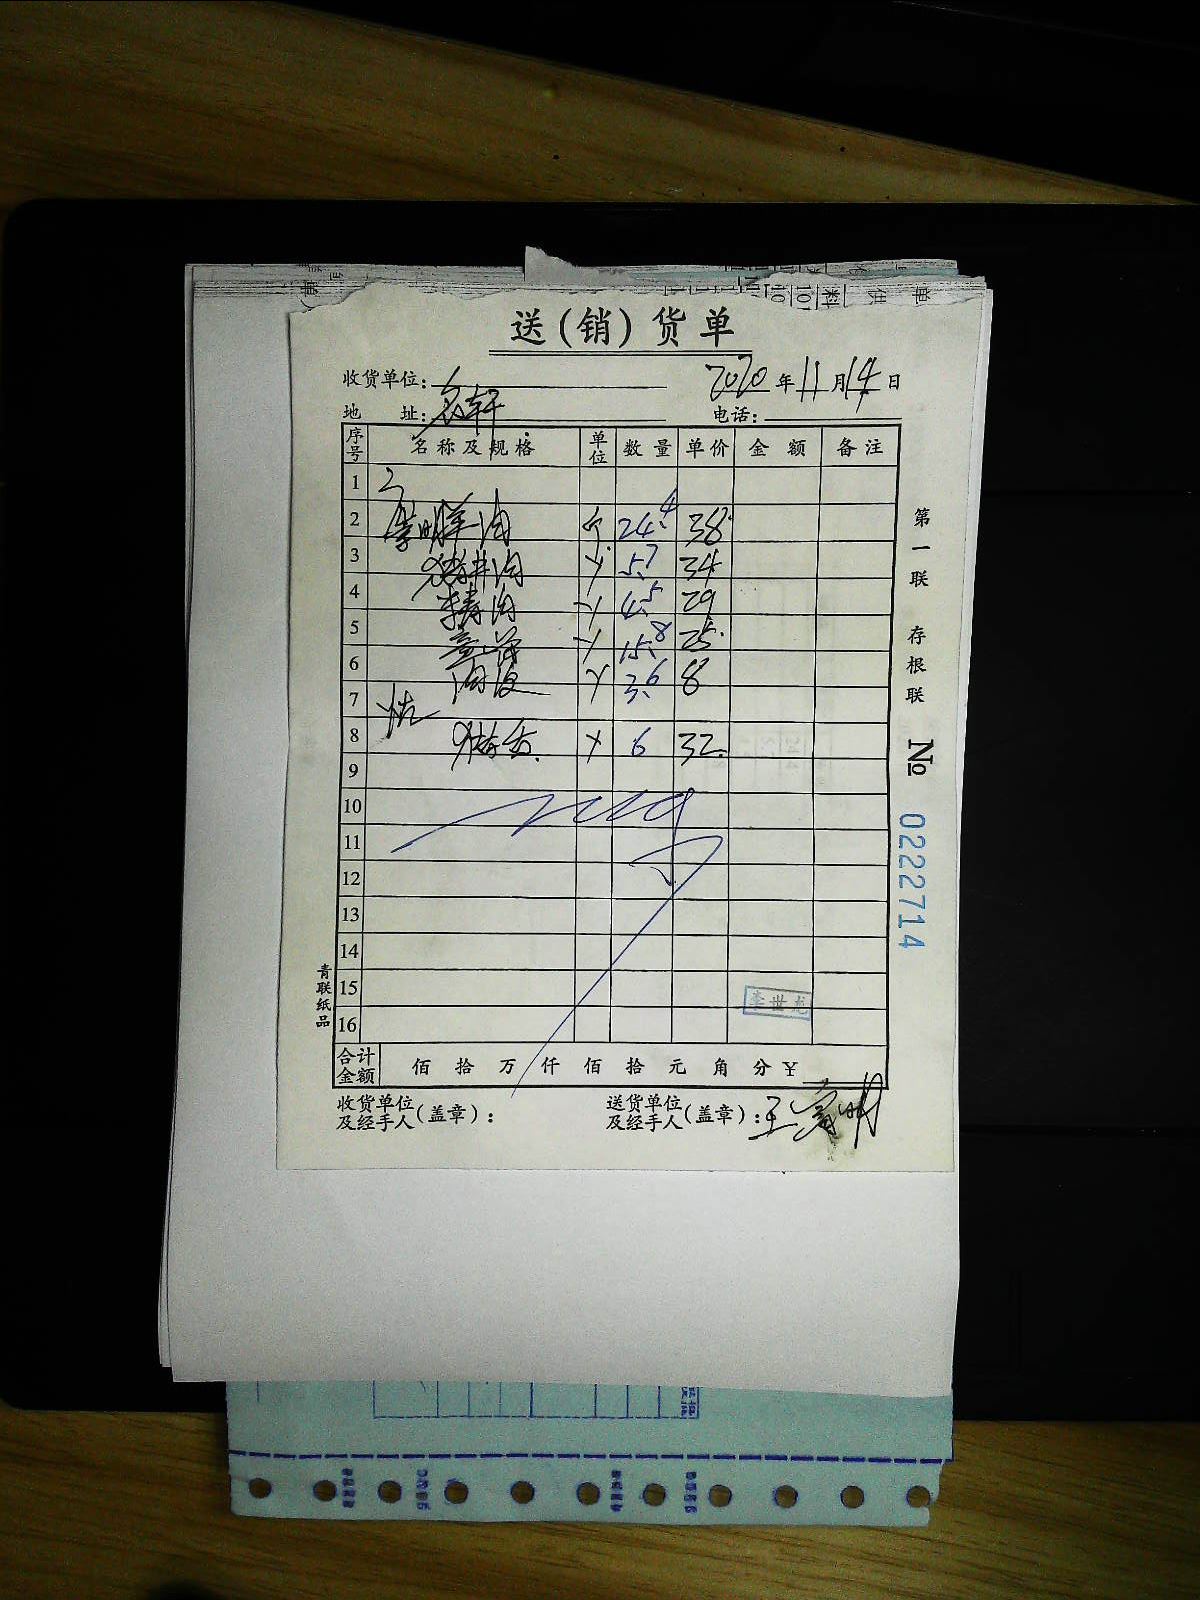 送(销)货单
收货单位: 2020年11月14日
地 址: 名轩 电话:
序号 名称及规格 单位 数量 单价 金额 备注
1
2 肉 24.4 38
3 肉 5.7 34
4 肉 4.5 29
5 15.8 25
6 肉皮 3.6 8
7
8 6 32
9
10
11
12
13
14
15 李世龙
16
合计金额 佰 拾 万 仟 佰 拾 元 角 分 ¥
收货单位及经手人(盖章): 送货单位及经手人(盖章): 王富明
第一联 存根联 № 0222714
青联纸品